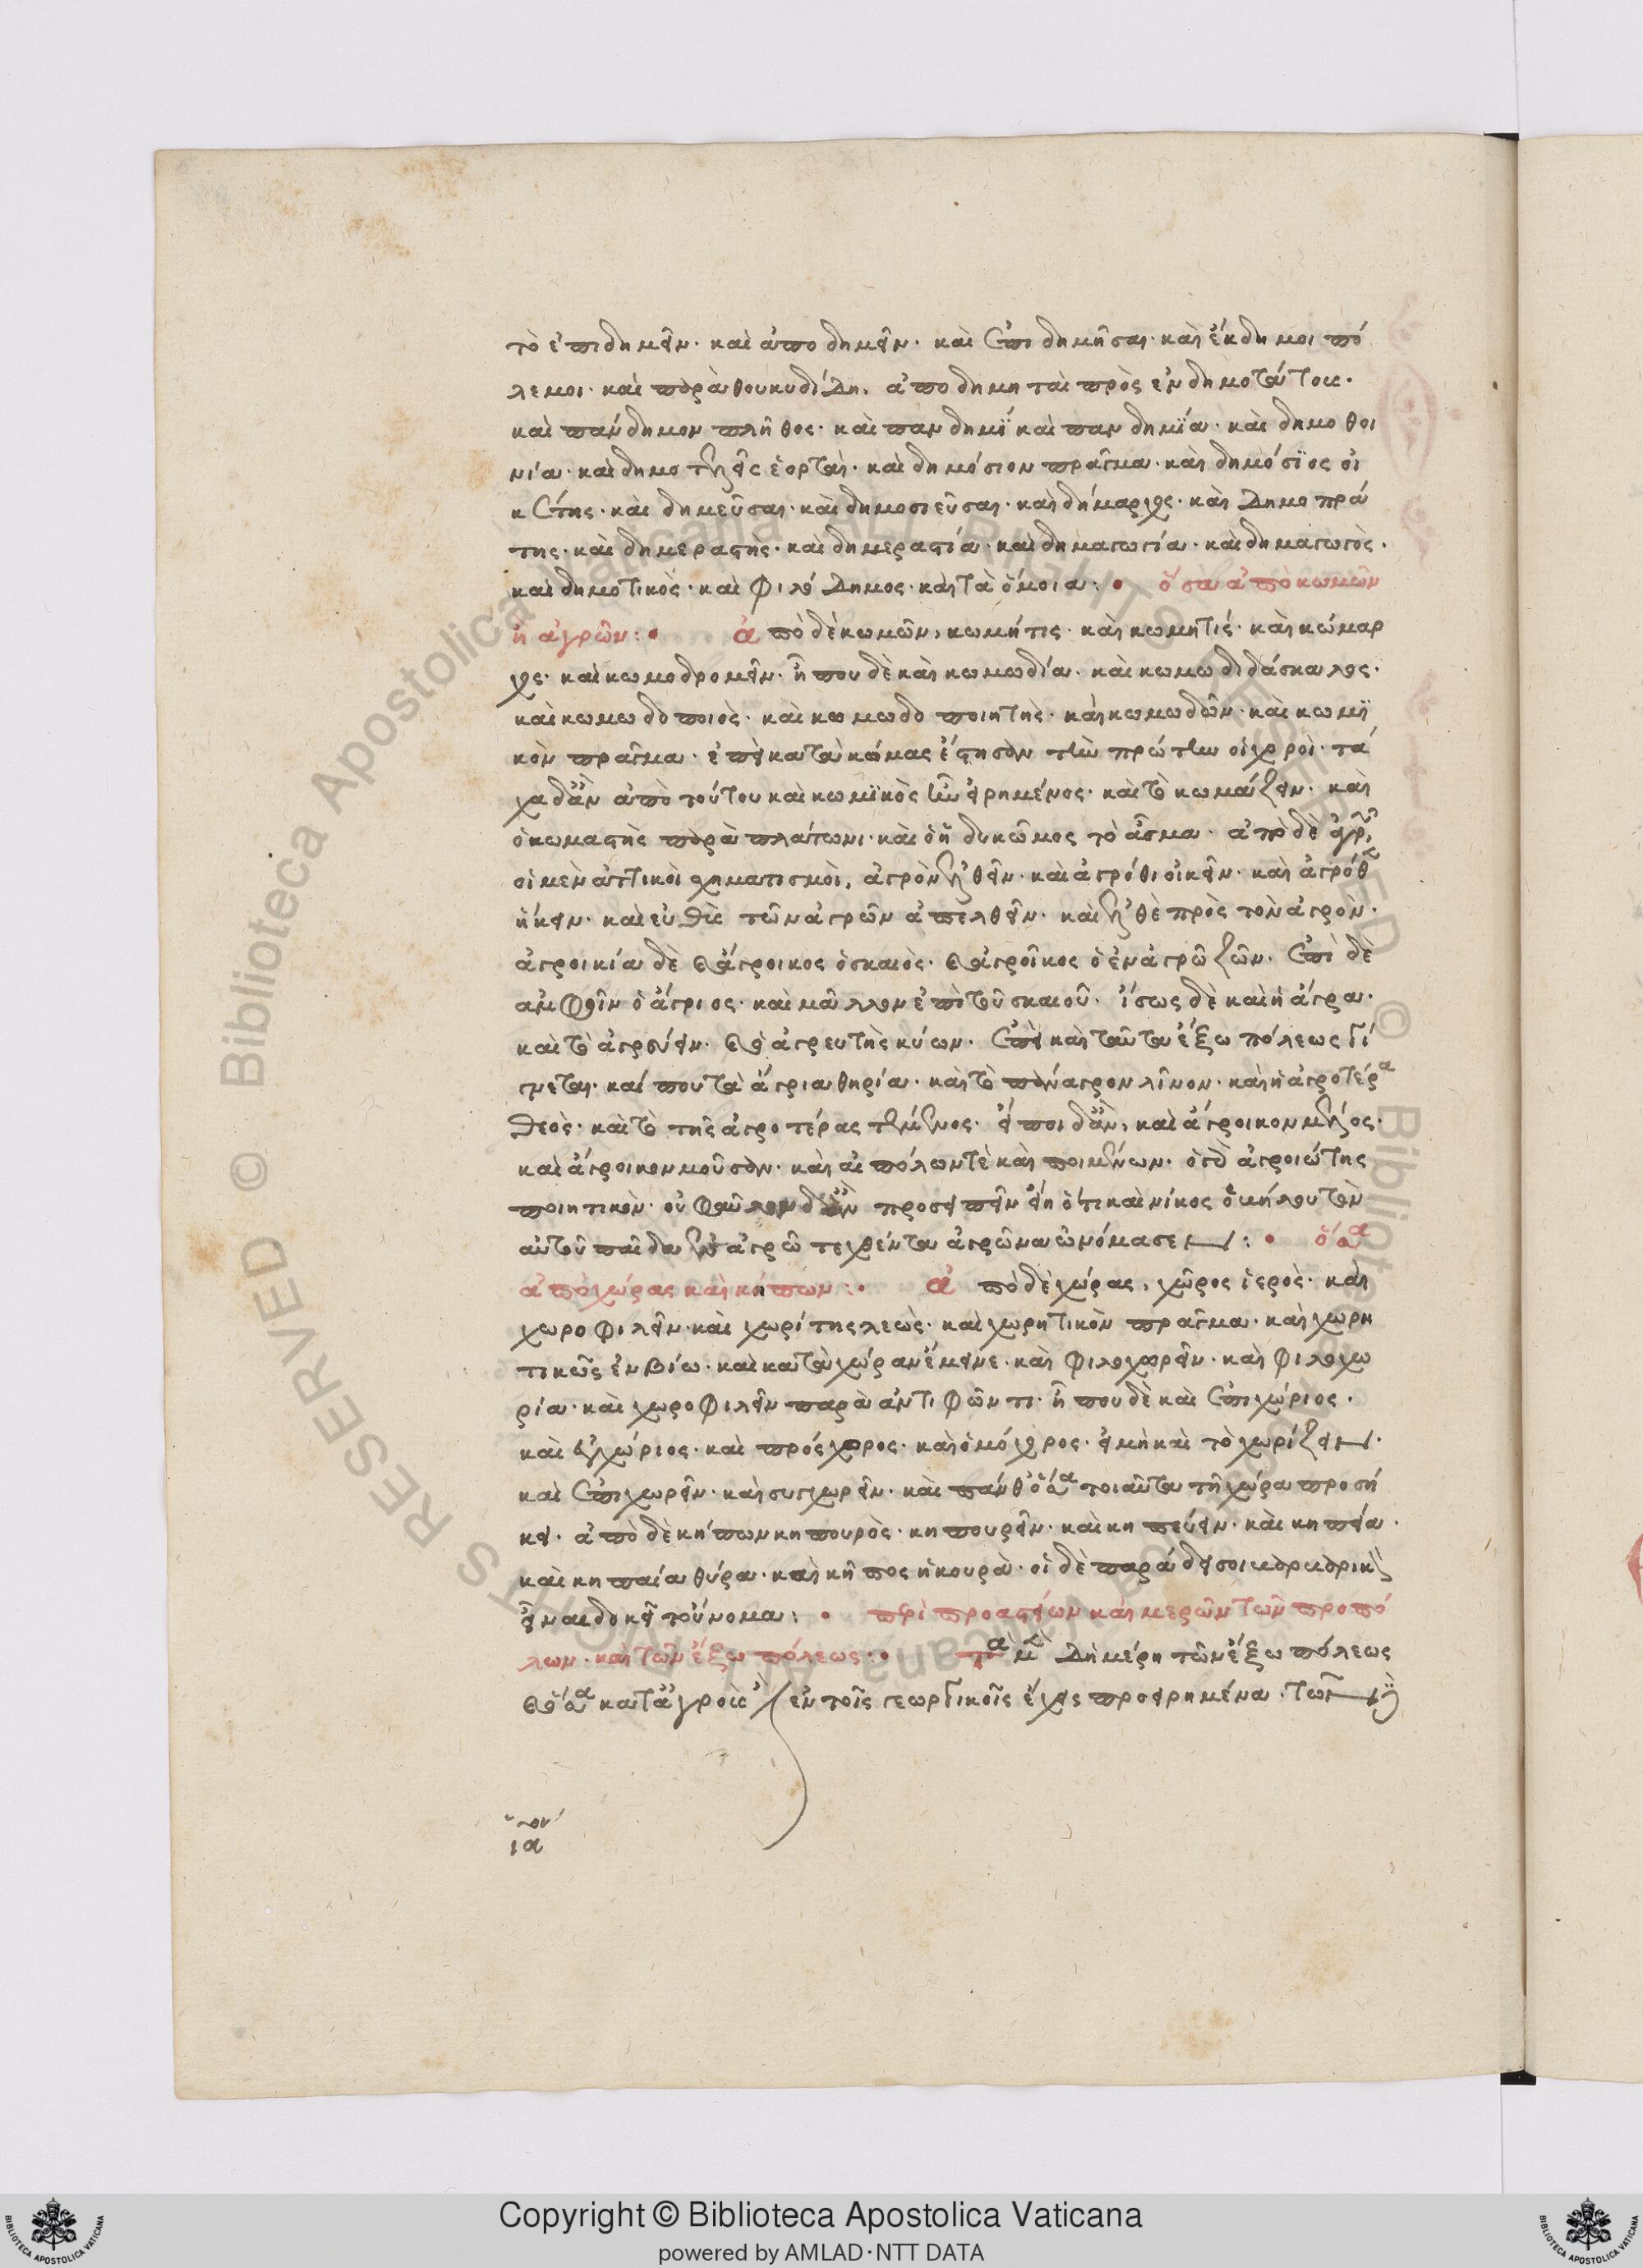 τὸ ἐπιδημεῖν· καὶ ἀποδημεῖν· καὶ ἐπιδημῆσαι· καὶ ἔκδημοι πό
λεμοι· καὶ παρὰ θουκυδίδη, ἀποδημηταὶ πρὸς ἐνδημοτάτους·
καὶ πάνδημον πλῆθος· καὶ πανδημὶ καὶ πανδημία· καὶ δημοθοι
νία· καὶ δημοτελεῖς ἑορταὶ· καὶ δημόσιον πρᾶγμα· καὶ δημόσιος οἰ
κέτης· καὶ δημεῦσαι· καὶ δημοσιεῦσαι· καὶ δήμαρχος· καὶ δημοπρά
της· καὶ δημεραστης· καὶ δημεραστία· καὶ δημαγωγία· καὶ δημαγωγὸς·
καὶ δημοτικὸς· καὶ φιλόδημος· καὶ τὰ ὅμοια: • ὅσα ἀπὸ κωμῶν
ἢ ἀγρῶν: • ἀπὸ δὲ κωμῶν, κωμήτις· καὶ κωμητίς· καὶ κώμαρ
χος· καὶ κωμοδρομεῖν· ἦ που δὲ καὶ κωμωδία· καὶ κωμωδιδάσκαλος·
καὶ κωμωδοποιὸς· καὶ κωμωδοποιητὴς· καὶ κωμωδῶν· καὶ κωμϊ
κὸν πρᾶγμα· ἐπεὶ κατὰ κώμας ἔστησαν τὴν πρώτην οἱ χοροὶ· τά
χα δἂν ἀπὸ τούτου καὶ κωμϊκὸς ἦν εἰρημένος· καὶ τὸ κωμάζειν· καὶ
ὁ κωμαστὴς παρὰ πλάτωνι· καὶ ὁ ἡδυκῶμος τὸ ἆσμα· ἀπὸ δὲ ἀγρῶν,
οἱ μὲν ἀττικοὶ σχηματισμοὶ, ἀγρὸν ἐλθεῖν· καὶ ἀγρόθι οἰκεῖν· καὶ ἀγρόθεν
ἥκειν· καὶ εὐθὺς τῶν ἀγρῶν ἀπελθεῖν· καὶ ἐλθὲ πρὸς τὸν ἀγρὸν·
ἀγροικία δὲ καὶ ἄγροικος ὁ σκαιὸς· καὶ ἀγροῖκος ὁ ἐν ἀγρῶ ζῶν· ἐπὶ δὲ
ἀμφοῖν ὁ ἄγριος· καὶ μᾶλλον ἐπὶ τοῦ σκαιοῦ· ἴσως δὲ καὶ ἡ ἄγρα·
καὶ τὸ ἀγρεύειν· καὶ ὁ ἀγρευτὴς κύων· ἐπεὶ καὶ ταῦτα ἔξω πόλεως γί
γνεται· καί που τὰ ἄγρια θηρία· καὶ τὸ πάναγρον λῖνον· καὶ ἡ ἀγροτέρα
θεὸς· καὶ τὸ τῆς ἀγροτέρας τέμενος· εἴποι δἂν, καὶ ἄγροικον μέλος·
καὶ ἄγροικον μοῦσαν· καὶ αἰπόλων τὲ καὶ ποιμένων· ὁ δὲ ἀγροιώτης
ποιητικὸν· οὐ φαῦλον δἂν προσειπεῖν εἴη ὅτι καὶ νίκος ὁ μήλου τὸν
αὐτοῦ παῖδα ἐν ἀγρῶ τεχθέντα ἀγρῶνα ὠνόμασεν: • ὅσα
ἀπὸ χώρας καὶ κήπων: • ἀπὸ δὲ χώρας, χῶρος ἱερὸς· καὶ
χωροφιλεῖν· καὶ χωρίτης λεὼς· καὶ χωρητικὸν πρᾶγμα· καὶ χωρη
τικῶς ἐν βίω· καὶ κατὰ χώραν ἔμεινε· καὶ φιλοχωρεῖν· καὶ φιλοχω
ρία· καὶ χωροφιλεῖν παρὰ ἀντιφῶντι· ἦ που δὲ καὶ ἐπιχώριος·
καὶ ἐγχώριος· καὶ πρόσχωρος· καὶ ὁμόχωρος· εἰ μὴ καὶ τὸ χωρίζειν·
καὶ ἐπιχωρεῖν· καὶ συγχωρεῖν· καὶ πάνθ ὅσα τοιαῦτα τῆ χώρα προσή
κει· ἀπὸ δὲ κήπων κηπουρὸς· κηπουρεῖν· καὶ κηπεύειν· καὶ κηπεία·
καὶ κηπαία θύρα· καὶ κῆπος ἡ κουρὰ· οἱ δὲ παράδεισοι βαρβαρικὸν
εἶναι δοκεῖ τοὔνομα: • περὶ προαστείων καὶ μερῶν τῶν προπό
λων· καὶ τῶν ἔξω πόλεως: • τὰ μὲν δὴ μέρη τῶν ἔξω πόλεως
καὶ ὅσα κατ ἀγροὺς, ἐν τοῖς γεωργικοῖς ἔχεις προειρημένα· τῶν
ια
Copyright © Biblioteca Apostolica Vaticana
powered by AMLAD·NTT DATA